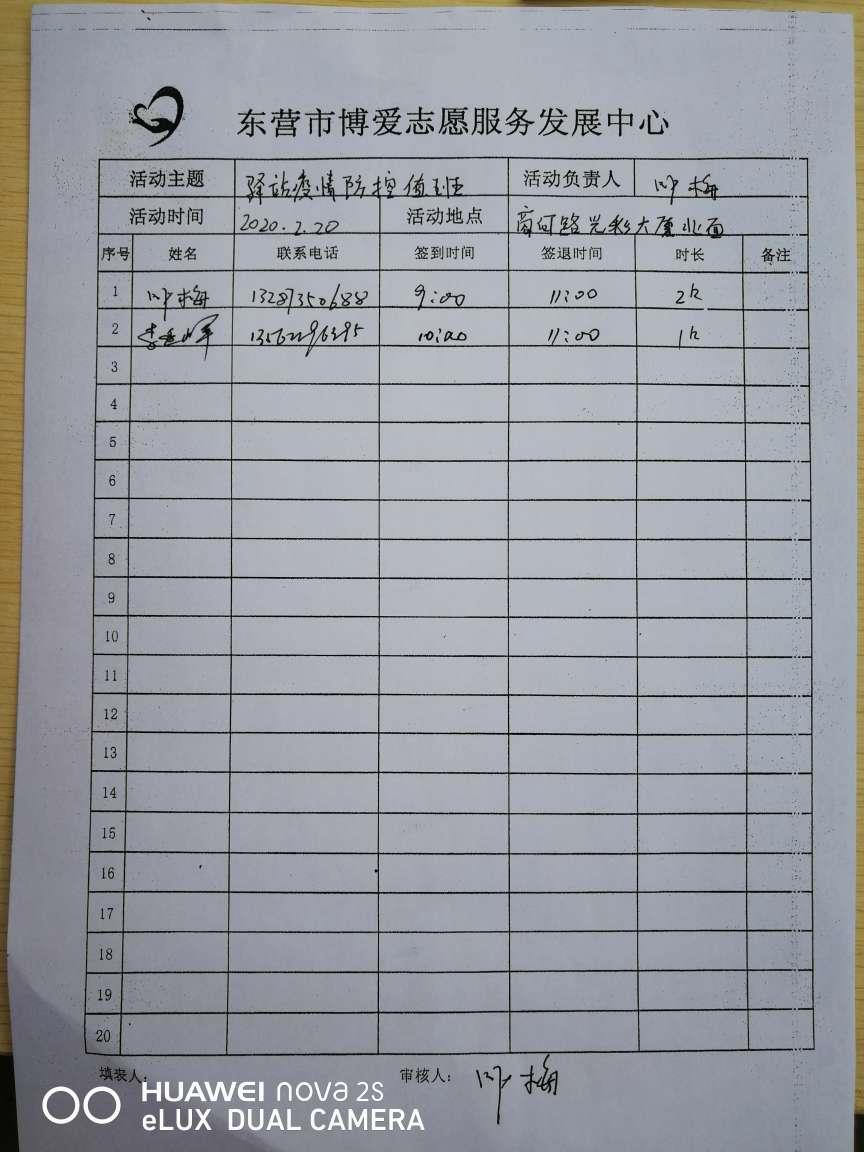 东营市博爱志愿服务发展中心
活动主题 驿站疫情防控值班 活动负责人 叶梅
活动时间 2020.2.20 活动地点 商河路光彩大厦北面
序号 姓名 联系电话 签到时间 签退时间 时长 备注
1 叶梅 13287350688 9:00 11:00 2h
2 李 13562296395 10:00 11:00 1h
3
4
5
6
7
8
9
10
11
12
13
14
15
16
17
18
19
20
填表人: 审核人: 叶梅
HUAWEI nova 2S
eLUX DUAL CAMERA